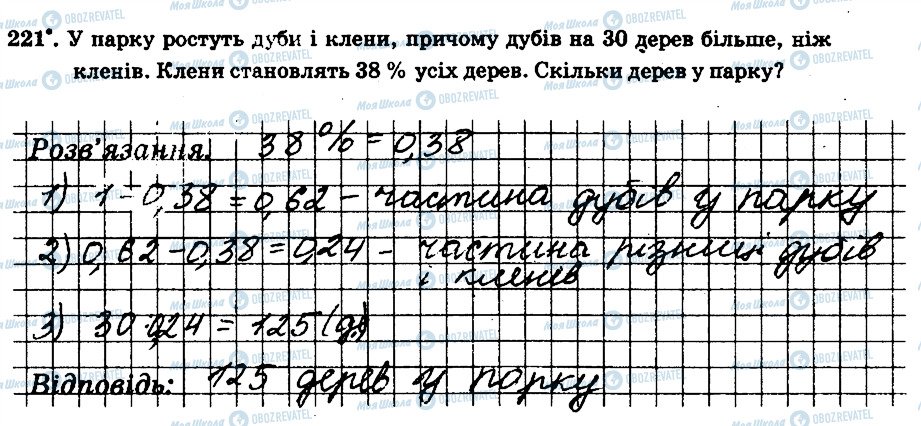 221*. У парку ростуть дуби і клени, причому дубів на 30 дерев більше, ніж
кленів. Клени становлять 38 % усіх дерев. Скільки дерев у парку?
Розв'язання. 38 % = 0,38
1) 1 - 0,38 = 0,62 - частина дубів у парку
2) 0,62 - 0,38 = 0,24 - частина різниці дубів
і кленів
3) 30 : 0,24 = 125 (д.)
Відповідь: 125 дерев у парку